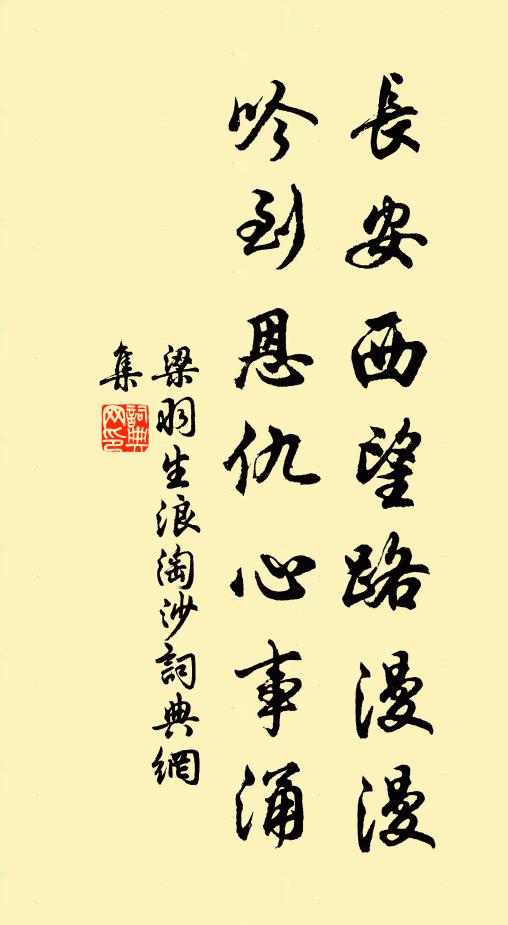 長安西望路漫漫
吟到恩仇心事涌
梁羽生浪淘沙詞典網
集
詞典
网印